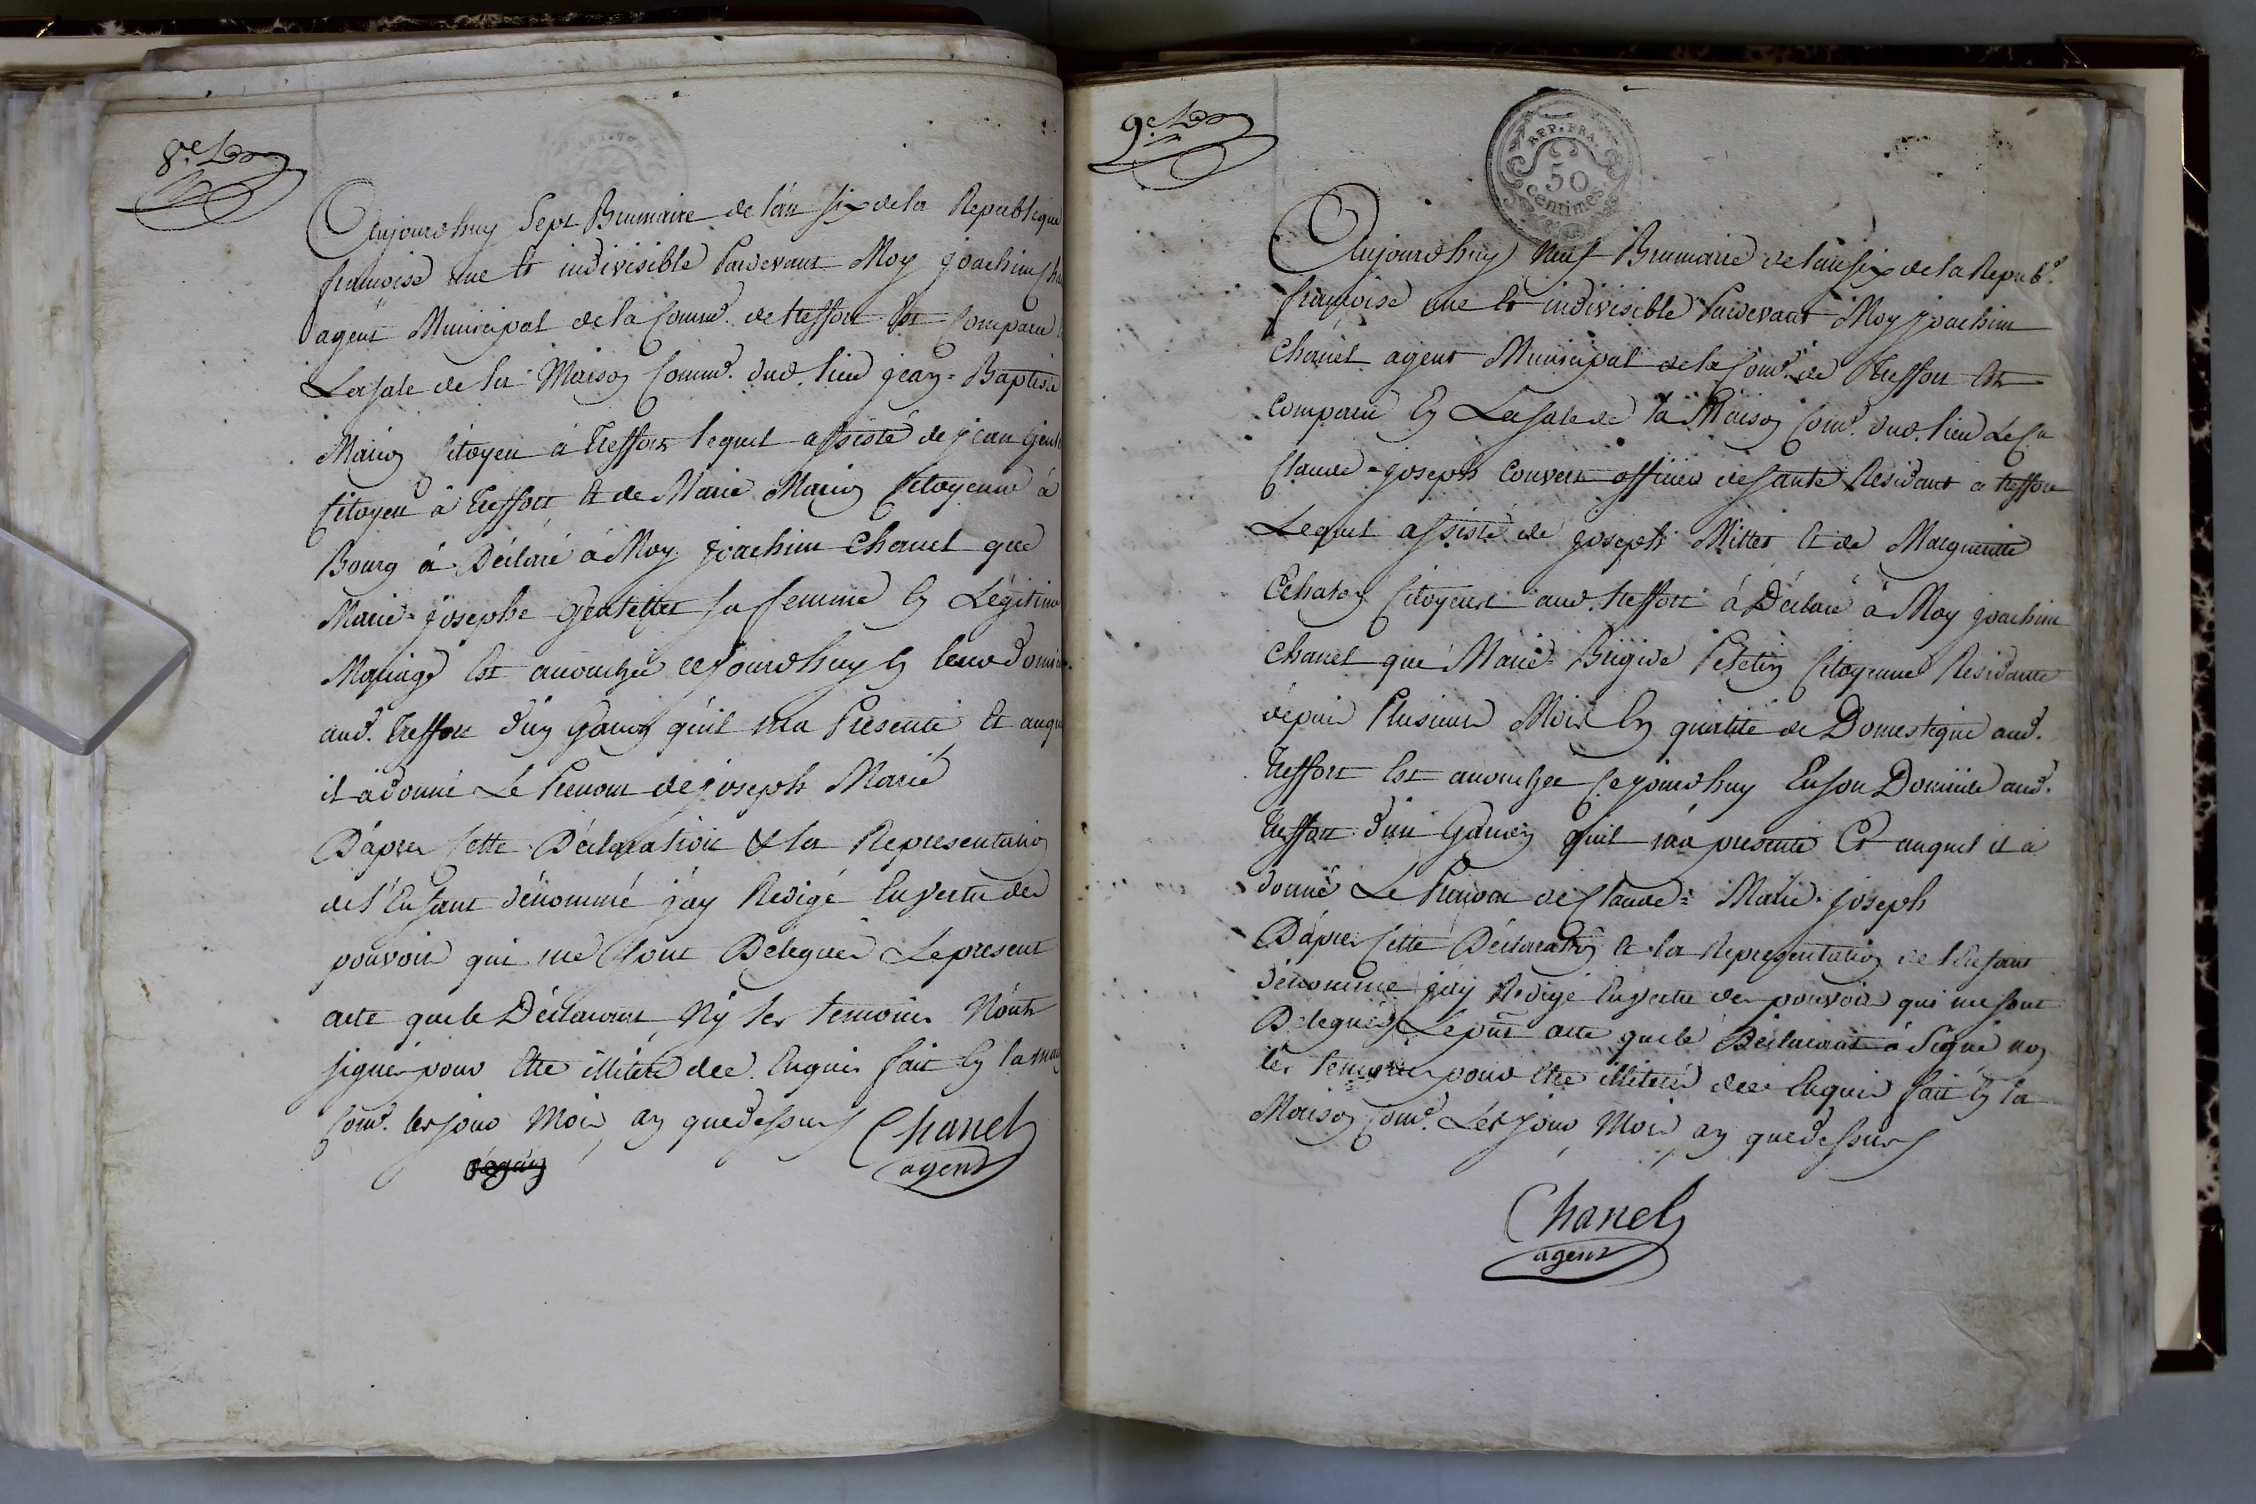 8.e
Aujourdhuy Sept Brumaire de l'an six de la Republique
françoise une et indivisible Pardevant Moy joachim Cha
agent Municipal de la Comm.e de treffort Est Comparu
La sale de la Maison Comm.e dud. lieu jean=Baptiste
Citoyen à Treffort lequel assisté de jean
Citoyen à Treffort et de Marie Citoyenne à
Bourg à Déclaré à Moy joachim Chanel que
Marie=josephe sa femme En Légitime
Mariage Est accouchée cejourdhuy En leur domi
aud. Treffort d'un Garcon qu'il ma Presenté et auqu
il à donné Le Prenom de joseph Marie
D'aprés Cette Déclaration & la Representation
de l'Enfant dénommé j'ay Redigé En vertu des
pouvoirs qui me Sont Delegués Le present
acte que le Déclarant Ny les temoins N'ont
signés pour Etre illiterés de ce Enquis fait En la mai
Com.e les jour Mois an que dessus
Chanel
agent
9.e
REP. FRA.
50
centimes
Aujourdhuy Neuf Brumaire de l'an six de la Repub.e
françoise une et indivisible Pardevant Moy joachim
Chanel agent Municipal de la Com.e de Treffort Est
comparu En La sale de la Maison Com.e dud. lieu Le Cn
Claude=joseph Convert officier de santé Residant a treffort
Lequel assisté de joseph et de Marguerite
Citoyens aud. treffort à Déclaré à Moy joachim
Chanel que Marie=Brigide Citoyenne Residante
dépuis Plusieurs Mois En qualité de Domestique aud.
Treffort Est accouchée Cejourdhuy En son Domicile aud.
Treffort d'un Garcon qu'il m'a presenté Et auquel il a
donné Le Prenom de Claude=Marie=joseph
D'aprés Cette Déclaration et la Representation de l'Enfant
dénommé j'ay Redigé En vertu des pouvoirs qui me sont
Delegués Le pnt acte que le Déclarant à Signé non
les temoins pour Etre illiterés de ce Enquis fait En la
Maison Com.e Les jour Mois an que dessus
Chanel
agent